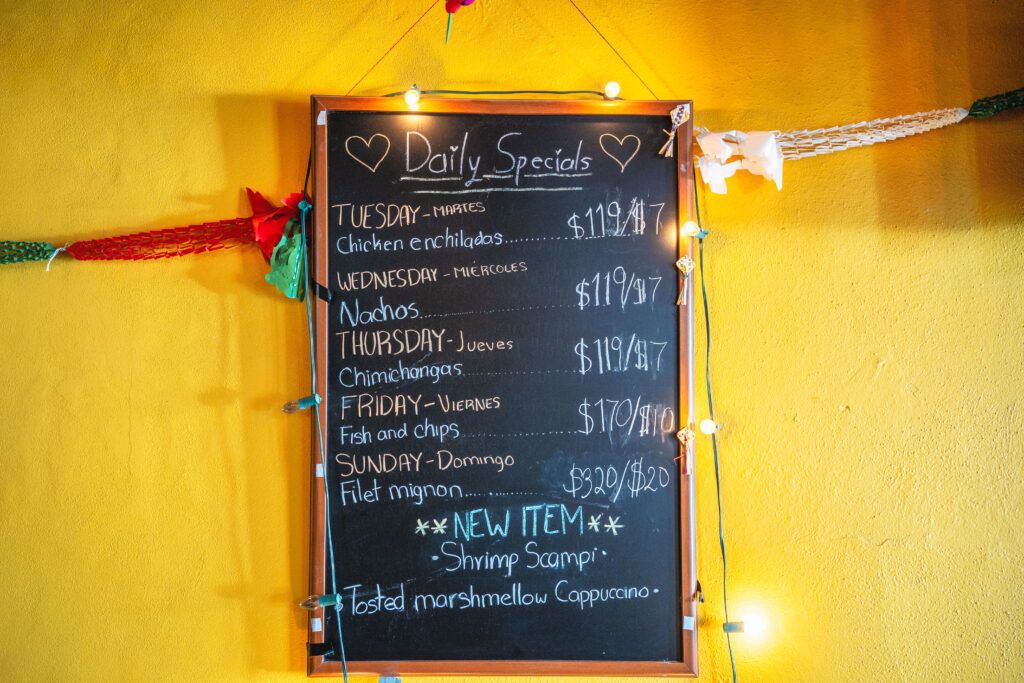 Daily Specials
TUESDAY-MARTES
Chicken enchiladas..........$119/$7
WEDNESDAY-MIÉRCOLES
Nachos..........$119/$7
THURSDAY-Jueves
Chimichangas..........$119/$7
FRIDAY-VIERNES
Fish and chips..........$170/$10
SUNDAY-Domingo
Filet mignon..........$320/$20
**NEW ITEM**
·Shrimp Scampi·
·Tosted marshmellow Cappuccino·